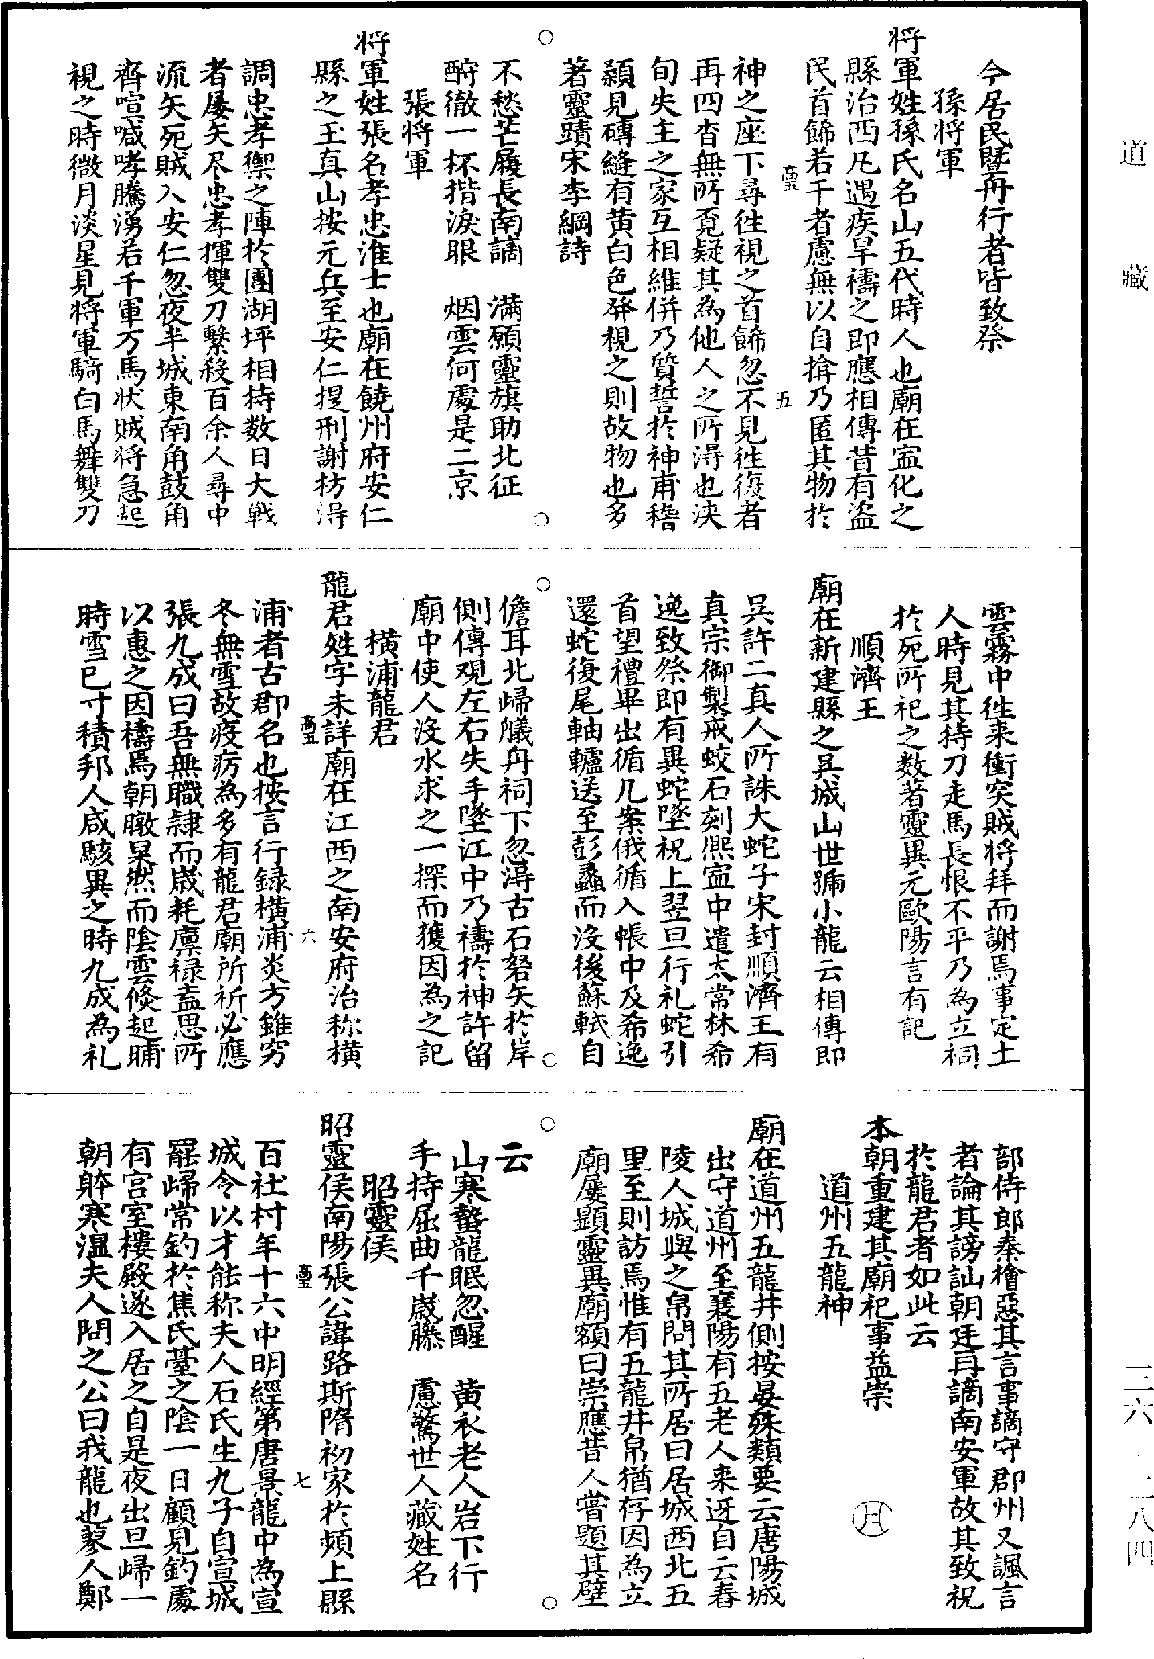 道藏
三六—二八四
今居民暨舟行者皆致祭
孫將軍
將軍姓孫氏名山五代時人也廟在寍化之
縣治西凡遇疾旱禱之即應相傳昔有盗
民首餙若干者慮無以自揜乃匿其物於
高五
神之座下尋徃視之首餙忽不見徃復者
五
再四杳無所覓疑其為他人之所淂也浹
旬失主之家互相維併乃質誓於神甫稽
顙見磚縫有黄白色發視之則故物也多
著靈蹟宋李綱詩
不愁芒屨長南謫　滿願靈旗助北征
酹徹一杯揩淚眼　烟雲何處是二京
張將軍
將軍姓張名孝忠淮士也廟在饒州府安仁
縣之玉真山按元兵至安仁提刑謝枋淂
調忠孝禦之陣於團湖坪相持数日大戰
者屡矢尽忠孝揮雙刀繫殺百余人尋中
流矢死賊入安仁忽夜半城東南角鼓角
齊喧喊哮騰湧若千軍万馬狀賊将急起
視之時微月淡星見將軍騎白馬舞雙刀
雲霧中徃来衝突賊将拜而謝焉事定土
人時見其持刀走馬長恨不平乃為立祠
於死所祀之数著靈異元歐陽言有記
順濟王
廟在新建縣之吴城山世號小龍云相傳即
吴許二真人所誅大蛇子宋封順濟王有
真宗御製戒蛟石刻熙寍中遣太常林希
逸致祭即有異蛇墜祝上翌旦行礼蛇引
首望禮畢出循几案俄循入帳中及希逸
還蛇復尾軸轤送至彭蠡而没後蘇軾自
儋耳北歸艤舟祠下忽淂古石砮矢於岸
側傳观左右失手墜江中乃禱於神許留
廟中使人没水求之一探而獲因為之記
横浦龍君
龍君姓字未詳廟在江西之南安府治称横
高五
浦者古郡名也按言行録横浦炎方錐穷
六
冬無雪故疫疠為多有龍君廟所祈必應
張九成曰吾無職隷而歲耗廪禄盍思所
以惠之因禱焉朝暾杲然而陰雲倐起晡
時雪已寸積邦人咸駭異之時九成為礼
部侍郎秦檜惡其言事謫守郡州又諷言
者論其謗訕朝廷再謫南安軍故其致祝
於龍君者如此云
本朝重建其廟祀事益崇
道州五龍神
月
廟在道州五龍井側按晏殊類要云唐陽城
出守道州至襄陽有五老人来迓自云舂
陵人城與之帛問其所居曰居城西北五
里至則訪焉惟有五龍井帛猶存因為立
廟屡顯靈異廟額曰崇應昔人嘗題其壁
云
山寒螯龍眠忽醒　黄衣老人岩下行
手持屈曲千歲藤　慮驚世人藏姓名
昭靈侯
昭靈侯南陽張公諱路斯隋初家於潁上縣
高五
百社村年十六中明經第唐景龍中為宣
七
城令以才能称夫人石氏生九子自宣城
罷歸常釣於焦氏臺之陰一日顧見釣處
有宫室樓殿遂入居之自是夜出旦歸一
朝辥寒溫夫人問之公曰我龍也蓼人鄭